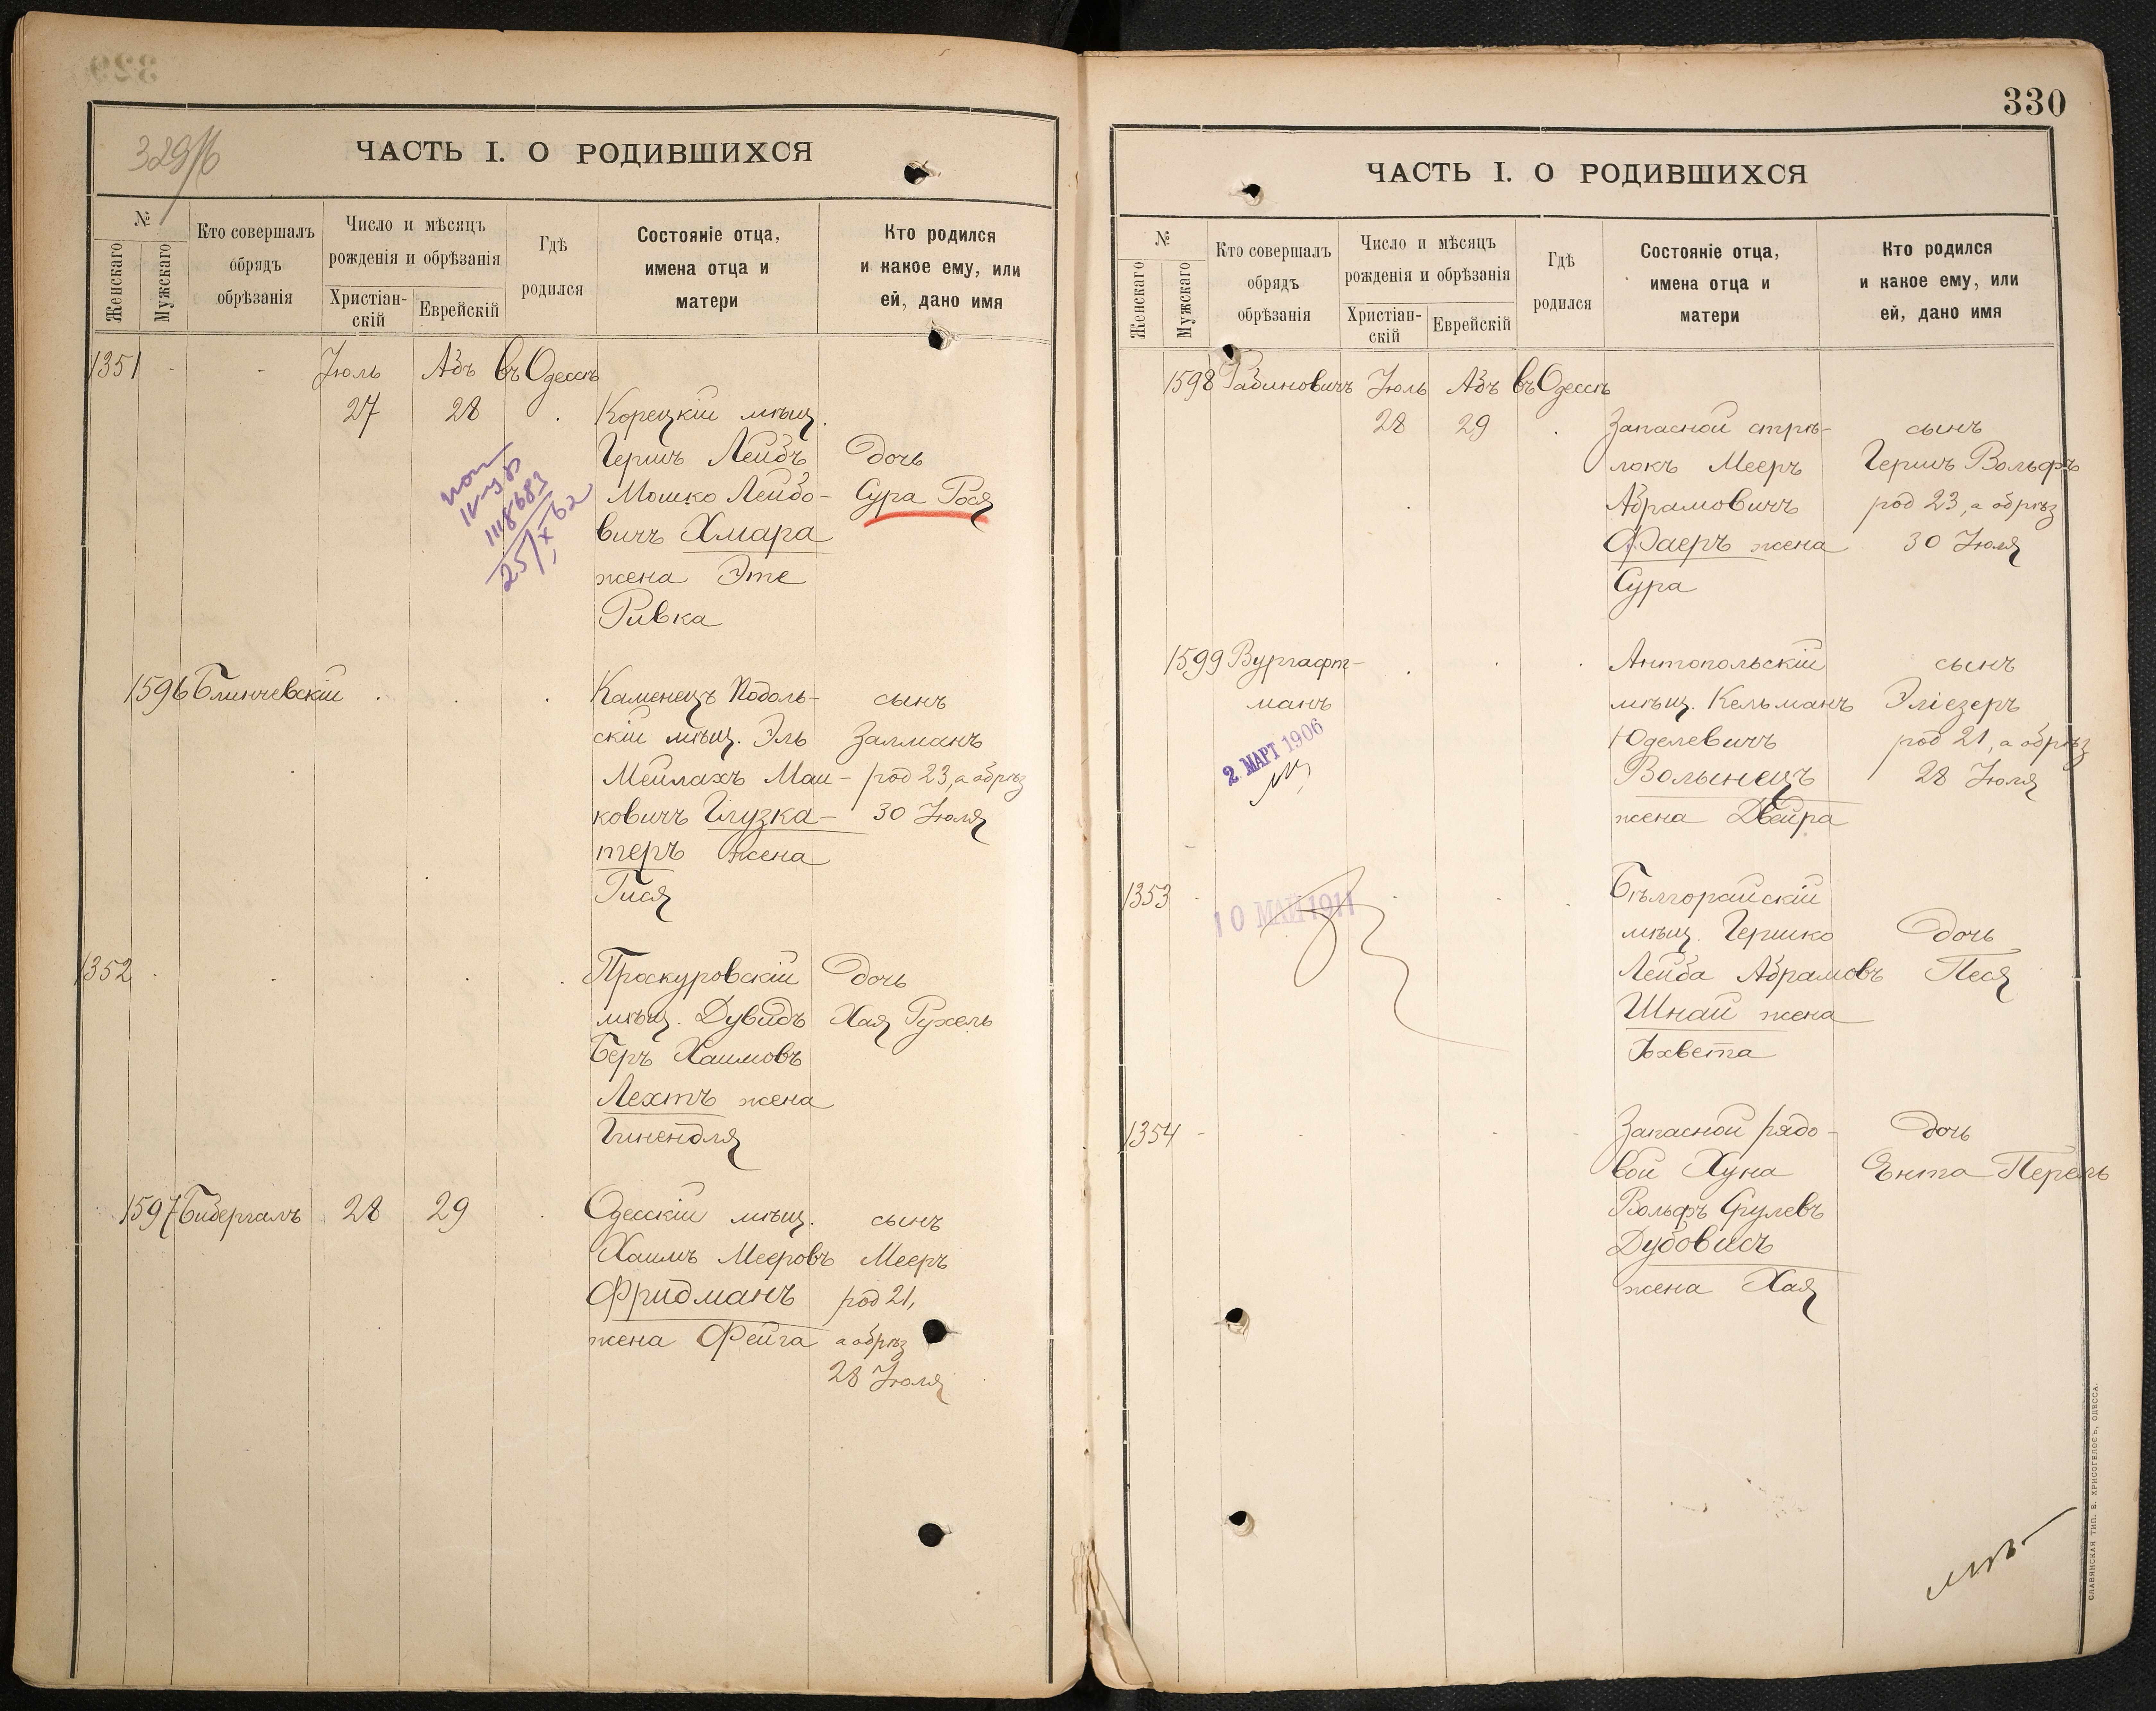 329/б
ЧАСТЬ I. О РОДИВШИХСЯ
№
Женскаго
Мужскаго
Кто совершалъ
обрядъ
обрѣзанія
Число и мѣсяцъ
рожденія и обрѣзанія
Христіан-
скій
Еврейскій
Гдѣ
родился
Состояніе отца,
имена отца и
матери
Кто родился
и какое ему, или
ей, дано имя
1351 - - Іюль Абъ въ Одессѣ
27 28 Корецкій мѣщ.
Гершъ Лейбъ дочь
Мошко Лейбо- Сура Рося
вичъ Хмара
жена Эте
Ривка
1118683
25/X 62
1596 Блинчевскій Каменецъ Подоль- сынъ
скій мѣщ. Эль Залманъ
Мейлахъ Маш- род 23, а обрѣз
ковичъ Глузка- 30 Іюля
теръ жена
Гися
1352 Проскуровскій дочь
мѣщ. Дувидъ Хая Рухель
Беръ Хаимовъ
Лехтъ жена
Гинендля
1597 Бибергалъ 28 29 Одесскій мѣщ. сынъ
Хаимъ Мееровъ Мееръ
Фридманъ род 21,
жена Фейга а обрѣз
28 Іюля
330
ЧАСТЬ I. О РОДИВШИХСЯ
№
Женскаго
Мужскаго
Кто совершалъ
обрядъ
обрѣзанія
Число и мѣсяцъ
рожденія и обрѣзанія
Христіан-
скій
Еврейскій
Гдѣ
родился
Состояніе отца,
имена отца и
матери
Кто родился
и какое ему, или
ей, дано имя
1598 Рабиновичъ Іюль Абъ въ Одессѣ
28 29 Запасной стрѣ- сынъ
локъ Мееръ Гершъ Вольфъ
Абрамовичъ род 23, а обрѣз
Фаеръ жена 30 Іюля
Сура
1599 Вургафт- Антопольскій сынъ
манъ мѣщ. Кельманъ Эліезеръ
Юделевичъ род 21, а обрѣз
2 МАРТ 1906
Волынецъ 28 Іюля
жена Двейра
1353 Бѣлгорайскій
10 МАЙ 1911
мѣщ. Гершко дочь
Лейба Абрамовъ Песя
Шнай жена
Іохвета
1354 - Запасной рядо- дочь
вой Хуна Ента Перель
Вольфъ Срулевъ
Дубовисъ
жена Хая
СЛАВЯНСКАЯ ТИП. Е. ХРИСОГЕЛОСЪ, ОДЕССА.